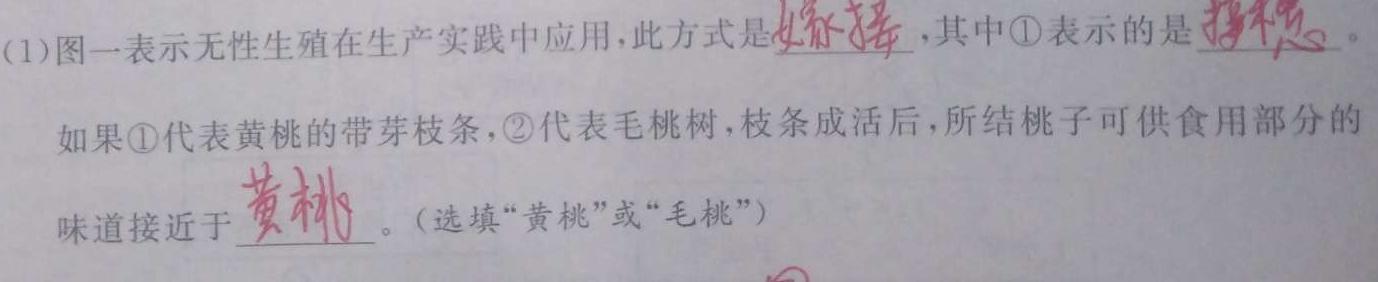 (1)图一表示无性生殖在生产实践中应用,此方式是嫁接,其中①表示的是接穗。
如果①代表黄桃的带芽枝条,②代表毛桃树,枝条成活后,所结桃子可供食用部分的
味道接近于黄桃。(选填“黄桃”或“毛桃”)